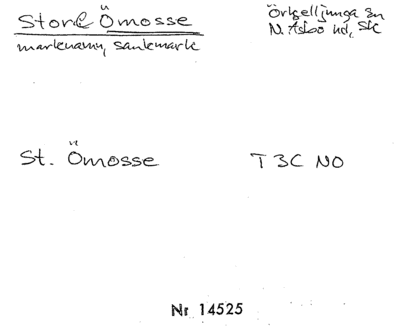 Store Ömosse
marknamn, sankmark
Örkelljunga sn
N. Åsbo hd, Sk
St. Ömosse
T 3C NO
Nr 14525